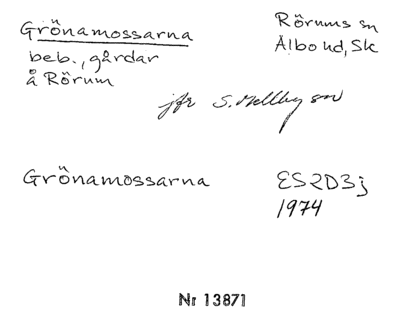 Grönamossarna
Rörums sn
beb., gårdar
Albo hd, Sk
å Rörum
jfr S. Mellby sn
Grönamossarna
ES2D3j
1974
Nr 13871